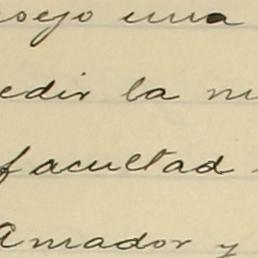 una
edir la
facultad
Amador y